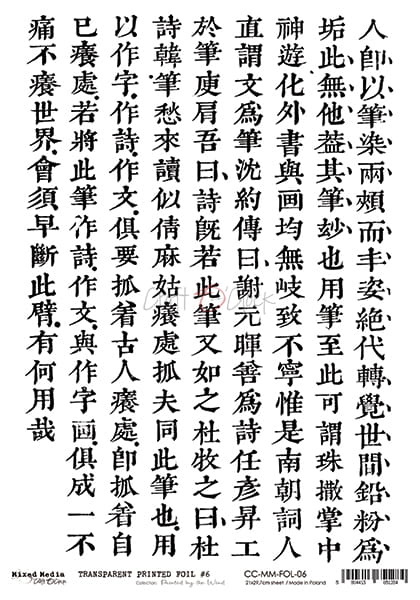 人卽以筆染兩頰而丰姿絶代轉覺世間鉛粉爲
垢此無他葢其筆玅也用筆至此可謂珠撒掌中
神遊化外書與画均無岐致不寧惟是南朝詞人
直謂文爲筆沈約傳曰、謝元暉善爲詩任彦昇工
於筆庾肩吾曰、詩旣若此筆又如之杜牧之曰杜
詩韓筆愁來讀似倩麻姑癢處抓夫同此筆也用
以作字作詩作文俱要抓着古人癢處卽抓着自
已癢處若將此筆作詩作文與作字画俱成一不
痛不癢世界會須早斷此臂有何用哉
Mixed Media
TRANSPARENT PRINTED FOIL #6
Collection: Painted by the Wind
CC-MM-FOL-06
21x29,7cm sheet / Made in Poland